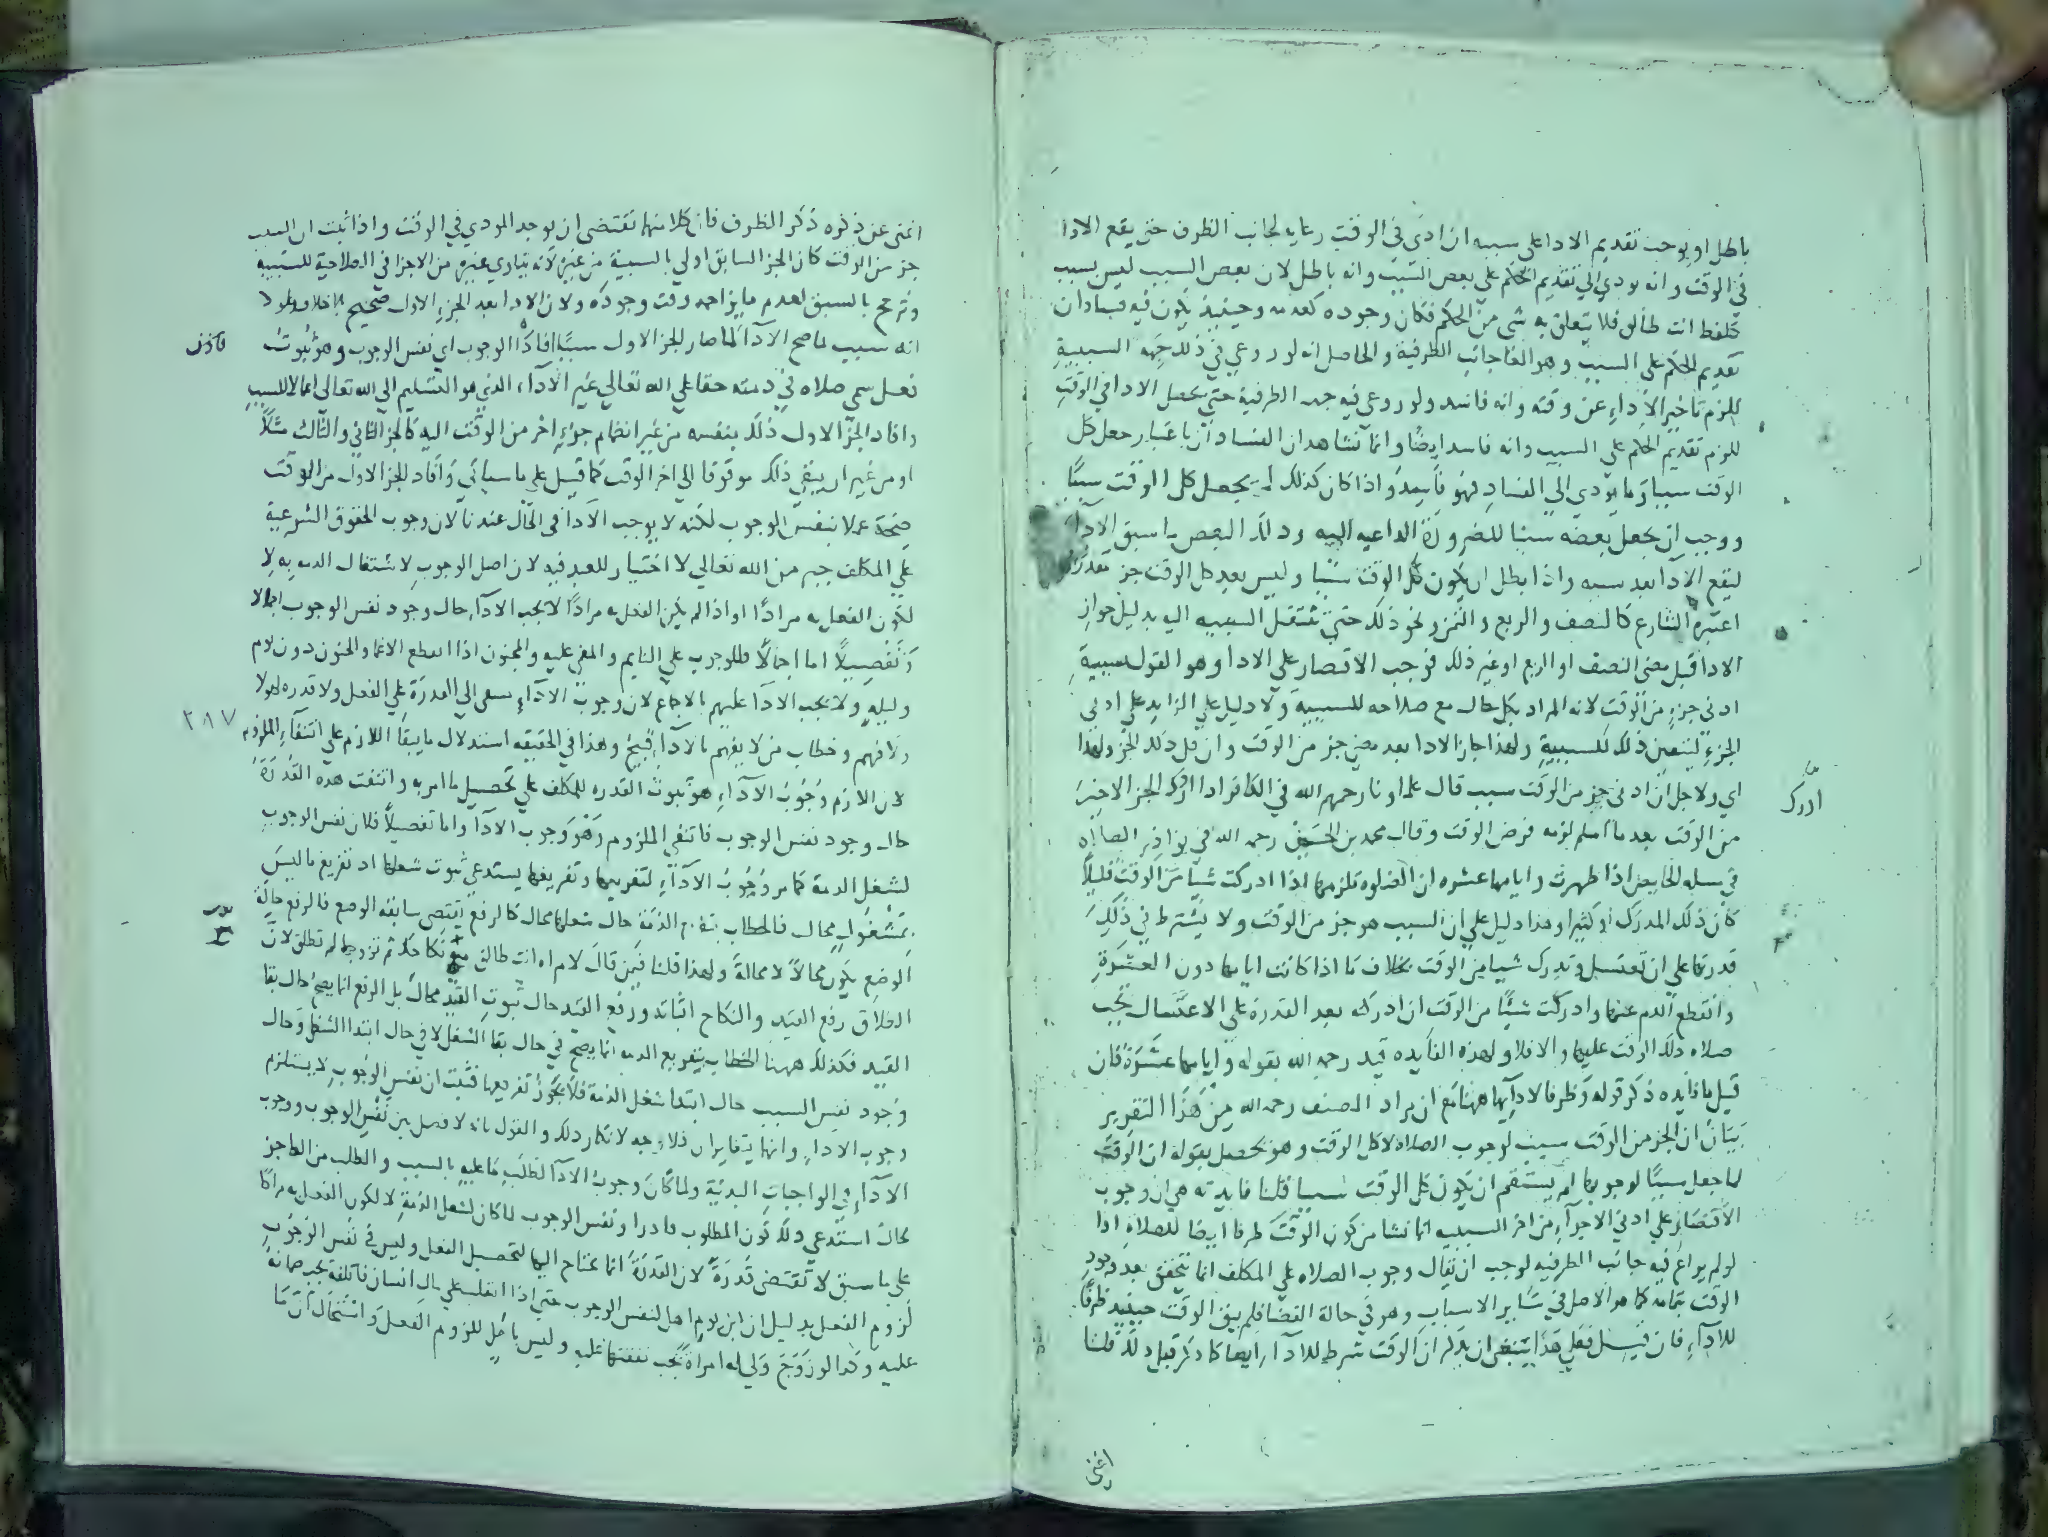 باطل او يوجب تقديم الادا على سببه ان ادى في الوقت رعايه لجانب الظرف حتى يقع الادا
في الوقت وانه يودي الي تقديم الحكم على بعض السبب وانه باطل لان بعض السبب ليس بسبب
كلفظ انت طالق فلا يتعلق به شي من الحكم فكان وجوده كعدمه وحينيذ يكون فيه فسادان
تقديم الحكم على السبب وهو الغا جانب الظرفية والحاصل انه لو روعي في ذلك جهه السببية
للزم تاخير الاداء عن وقته وانه فاسد ولو روعي فيه جهه الظرفية حتى يحصل الادا في الوقت
للزم تقديم الحكم على السبب وانه فاسد ايضا وانما نشا هدان الفسادان باعتبار جعل كل
الوقت سببا وما يودي الي الفساد فهو فاسد واذا كان كذلك لم يجعل كل الوقت سببا
ووجب ان يجعل بعضه سببا للضرورة الداعيه اليه وذلك البعض ما سبق الادا
ليقع الادا بعد سببه واذا بطل ان يكون كل الوقت سببا وليس بعد كل الوقت جز مقدر
اعتبره الشارع كالنصف والربع والثمن ونحو ذلك حتى تنتقل السببيه اليه بدليل جواز
الادا قبل مضى النصف او الربع او غير ذلك فوجب الاقتصار على الادنا وهو القول بسببية
ادنى جزء من الوقت لانه المراد بكل حال مع صلاحه للسببية ولا دليل على الزايد على ادنى
الجزء ليتعين ذلك للسببية ولهذا جاز الادا بعد مضى جز من الوقت وان قل ذلك الجز ولهذا
اي ولاجل ان ادنى جز من الوقت سبب قال علماونا رحمهم الله في الكافر اذا ادرك الجز الاخير
من الوقت بعد ما اسلم لزمه فرض الوقت وقال محمد بن الحسن رحمه الله في نوادر الصلاه
في مسله الحايض اذا طهرت وايامها عشره ان الصلوه تلزمها اذا ادركت شيا من الوقت قليلا
كان ذلك المدرك او كثيرا وهذا دليل على ان السبب هو جز من الوقت ولا يشترط في ذلك
قدرتها على ان تغتسل وتدرك شيا من الوقت بخلاف ما اذا كانت ايامها دون العشرة
وانقطع الدم عنها وادركت شيئا من الوقت ان ادركه بعد القدرة على الاغتسال يجب
صلاه ذلك الوقت عليها والا فلا ولهذه الفايده قيد رحمه الله بقوله وايامها عشرة فان
قيل ما فايده ذكر قوله وظرفا لادآيها ههنا مع ان مراد المصنف رحمه الله من هذا التقرير
بيان ان الجز من الوقت سبب لوجوب الصلاه لا كل الوقت وهو يحصل بقوله ان الوقت
لما جعل سببا لوجوبها لم يستقم ان يكون كل الوقت سببا قلنا فايدته هي ان وجوب
الاقتصار على ادنى الاجزآء من اخر السببيه انما نشا من كون الوقت ظرفا ايضا للصلاه اذا
لو لم يراع فيه جانب الظرفيه لوجب ان يقال وجوب الصلاه على المكلف انما يتحقق بعد وجود
الوقت بتمامه كما هو الاصل في ساير الاسباب وهو في حالة القضا فلم يبق الوقت حينيد ظرفا
للادآء فان قيل فعلى هذا ينبغي ان يذكر ان الوقت شرط للادآء ايضا كما ذكر قبل ذلك قلنا
ادرك
اغنى
اغنى عن ذكره ذكر الظرف فان كلا منهما تقتضى ان يوجد المودي في الوقت واذا ثبت ان السبب
جز من الوقت كان الجز السابق اولي بالسببية من غيره لانه يتادي غيره من الاجزا في الصلاحية للسببية
وترجح بالسبق لعدم ما يزاحمه وقت وجوده ولان الادا بعد الجزء الاول صحيح بلا خلاف ولولا
انه سبب لما صح الادآ لما صار الجز الاول سببا افاد الوجوب اي نفس الوجوب وهو ثبوت
فعل سمي صلاه في ذمته حقا على الله تعالى غير الادآء الذي هو التسليم الي الله تعالي
وافاد الجز الاول ذلك بنفسه من غير انضمام جزء اخر من الوقت اليه كالجز الثاني والثالث مثلا
او من غير ان يبقى ذلك موقوفا الي اخر الوقت كما قيل على ما سياتي وافاد الجز الاول من الوقت
صحة عملا بنفس الوجوب لكنه لا يوجب الادآ في الحال عندنا لان وجوب الحقوق الشرعية
على المكلف جبر من الله تعالي لا اختيار للعبد فيه لان اصل الوجوب لاشتغال الذمه به لا
لكون الفعل به مرادا او اذا لم يكن الفعل به مرادا لا يجب الادآء حال وجود نفس الوجوب اجمالا
وتفصيلا اما اجمالا فللوجوب على النايم والمغمى عليه والمجنون اذا انقطع الاغما والجنون دون يوم
وليله ولا يجب الادآ عليهم بالاجماع لان وجوب الادآء يستدعي القدرة على الفعل ولا قدره لهولا
ولا فهم وخطاب من لا يفهم بالادآء قبيح وهذا في الحقيقه استدلال بانتفآ اللازم على انتفآء الملزوم
لان اللازم وجوب الادآء هو ثبوت القدره للمكلف على تحصيل ما امر به وانتفت هذه القدرة
حال وجود نفس الوجوب فانتفي الملزوم وهو وجوب الادآ واما تفصيلا فلان نفس الوجوب
لشغل الذمة كما مر ووجوب الادآء لتفريغها وتفريغها يستدعي ثبوت شغلها اذ تفريغ ما ليس
بمشغول محال فالخطاب بتفريغ الذمة حال شغلها محال كالرفع يقتضى سابقه الوضع فالرفع حالة
الوضع يكون محالا لا محالة ولهذا قلنا فيمن قال لامراه انت طالق مع نكاحك ثم تزوجها لم تطلق لان
الطلاق رفع القيد والنكاح اثباته ورفع القيد حال ثبوت القيد محال بل الرفع انما يصح حال بقا
القيد فكذلك ههنا الخطاب بتفريغ الذمه انما يصح في حال بقا الشغل لا في حال ابتدا الشغل وحال
وجود نفس السبب حال ابتدا شغل الذمة فلا يجوز تفريغها فثبت ان نفس الوجوب لا يستلزم
وجوب الاداء وانهما يتغايران فلا وجه لانكار ذلك والقول بانه لا فصل بين نفس الوجوب ووجوب
الادآء في الواجبات البدنية ولما كان وجوب الادآ لطلب ما عليه بالسبب والطلب من العاجز
محال استدعي ذلك كون المطلوب قادرا ونفس الوجوب لما كان لشغل الذمة لا لكون الفعل به مرادا
على ما سبق لا تقتضى قدرة لان القدرة انما يحتاج اليها لتحصيل الفعل وليس في نفس الوجوب
لزوم الفعل بدليل ان ابن يوم اهل لنفس الوجوب حتى اذا انقلب على مال انسان فاتلفه يجب ضمانه
عليه وكذا لو زوج ولي له امراة يجب نفقتها عليه وليس باهل للزوم الفعل واستحال ان ما
٢٨٧